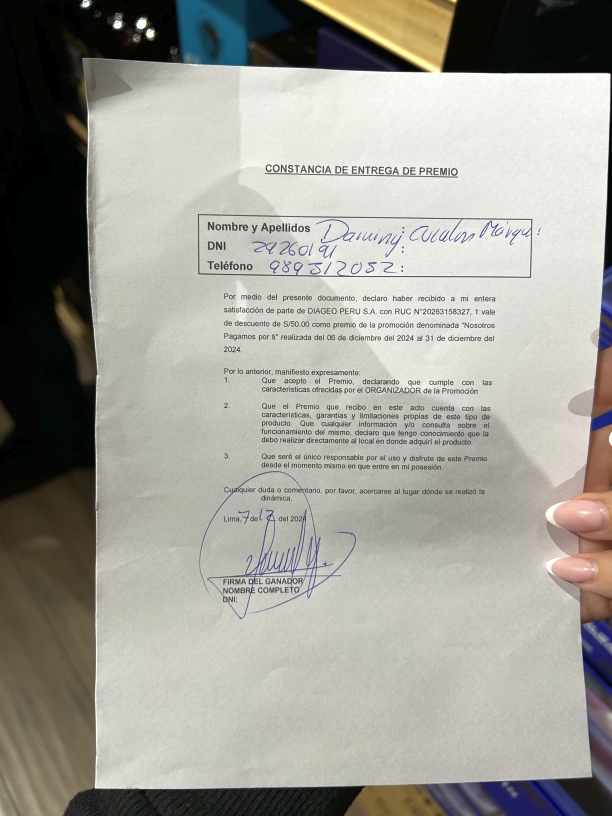 CONSTANCIA DE ENTREGA DE PREMIO
Nombre y Apellidos :
DNI 29260191
Teléfono 989512052 :
Por medio del presente documento, declaro haber recibido a mi entera
satisfacción de parte de DIAGEO PERU S.A. con RUC N°20263158327, 1 vale
de descuento de S/50.00 como premio de la promoción denominada "Nosotros
Pagamos por ti" realizada del 06 de diciembre del 2024 al 31 de diciembre del
2024.
Por lo anterior, manifiesto expresamente:
1. Que acepto el Premio, declarando que cumple con las
características ofrecidas por el ORGANIZADOR de la Promoción
2. Que el Premio que recibo en este acto cuenta con las
características, garantías y limitaciones propias de este tipo de
producto. Que cualquier información y/o consulta sobre el
funcionamiento del mismo, declaro que tengo conocimiento que la
debo realizar directamente al local en donde adquirí el producto
3. Que seré el único responsable por el uso y disfrute de este Premio
desde el momento mismo en que entre en mi posesión.
Cualquier duda o comentario, por favor, acercarse al lugar dónde se realizó la
dinámica.
Lima, 7 de 12 del 2024
FIRMA DEL GANADOR
NOMBRE COMPLETO
DNI: